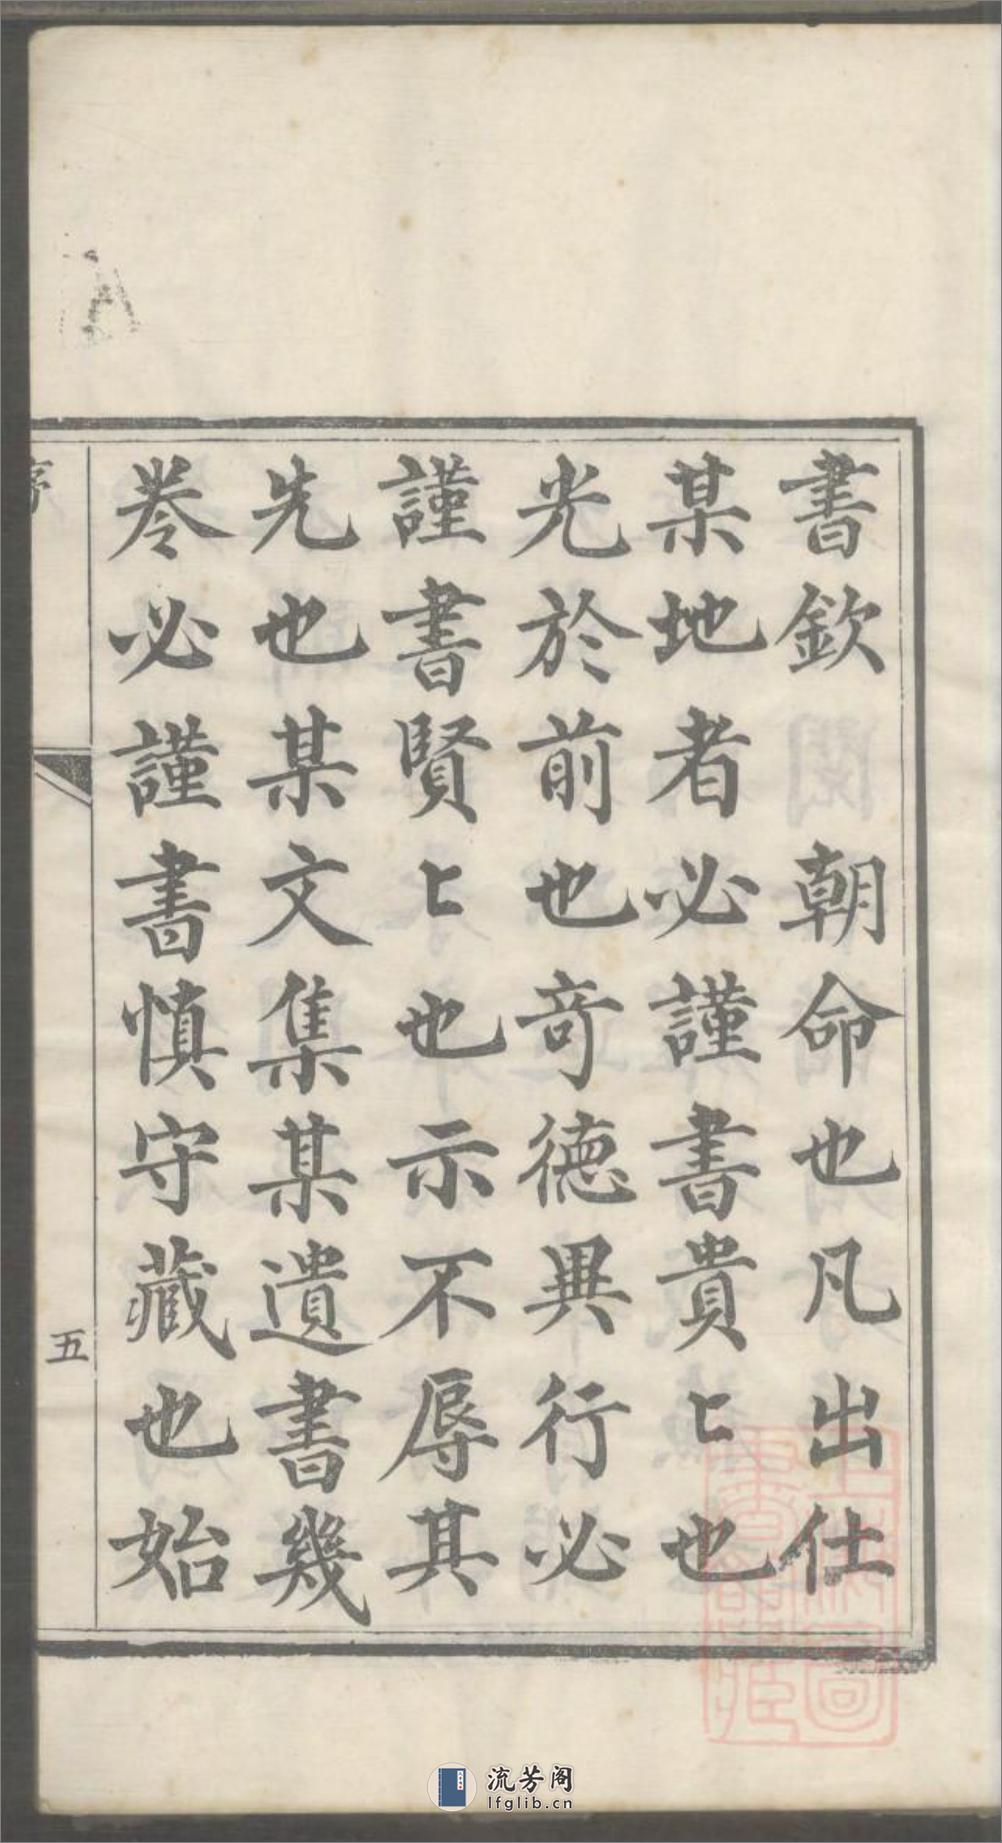 書欽　朝命也凡出仕
某地者必謹書貴〻也
光於前也竒德異行必
謹書賢〻也示不辱其
先也某文集某遺書幾
卷必謹書慎守藏也始
序
五
上海圖書館藏
流芳阁
lfglib.cn